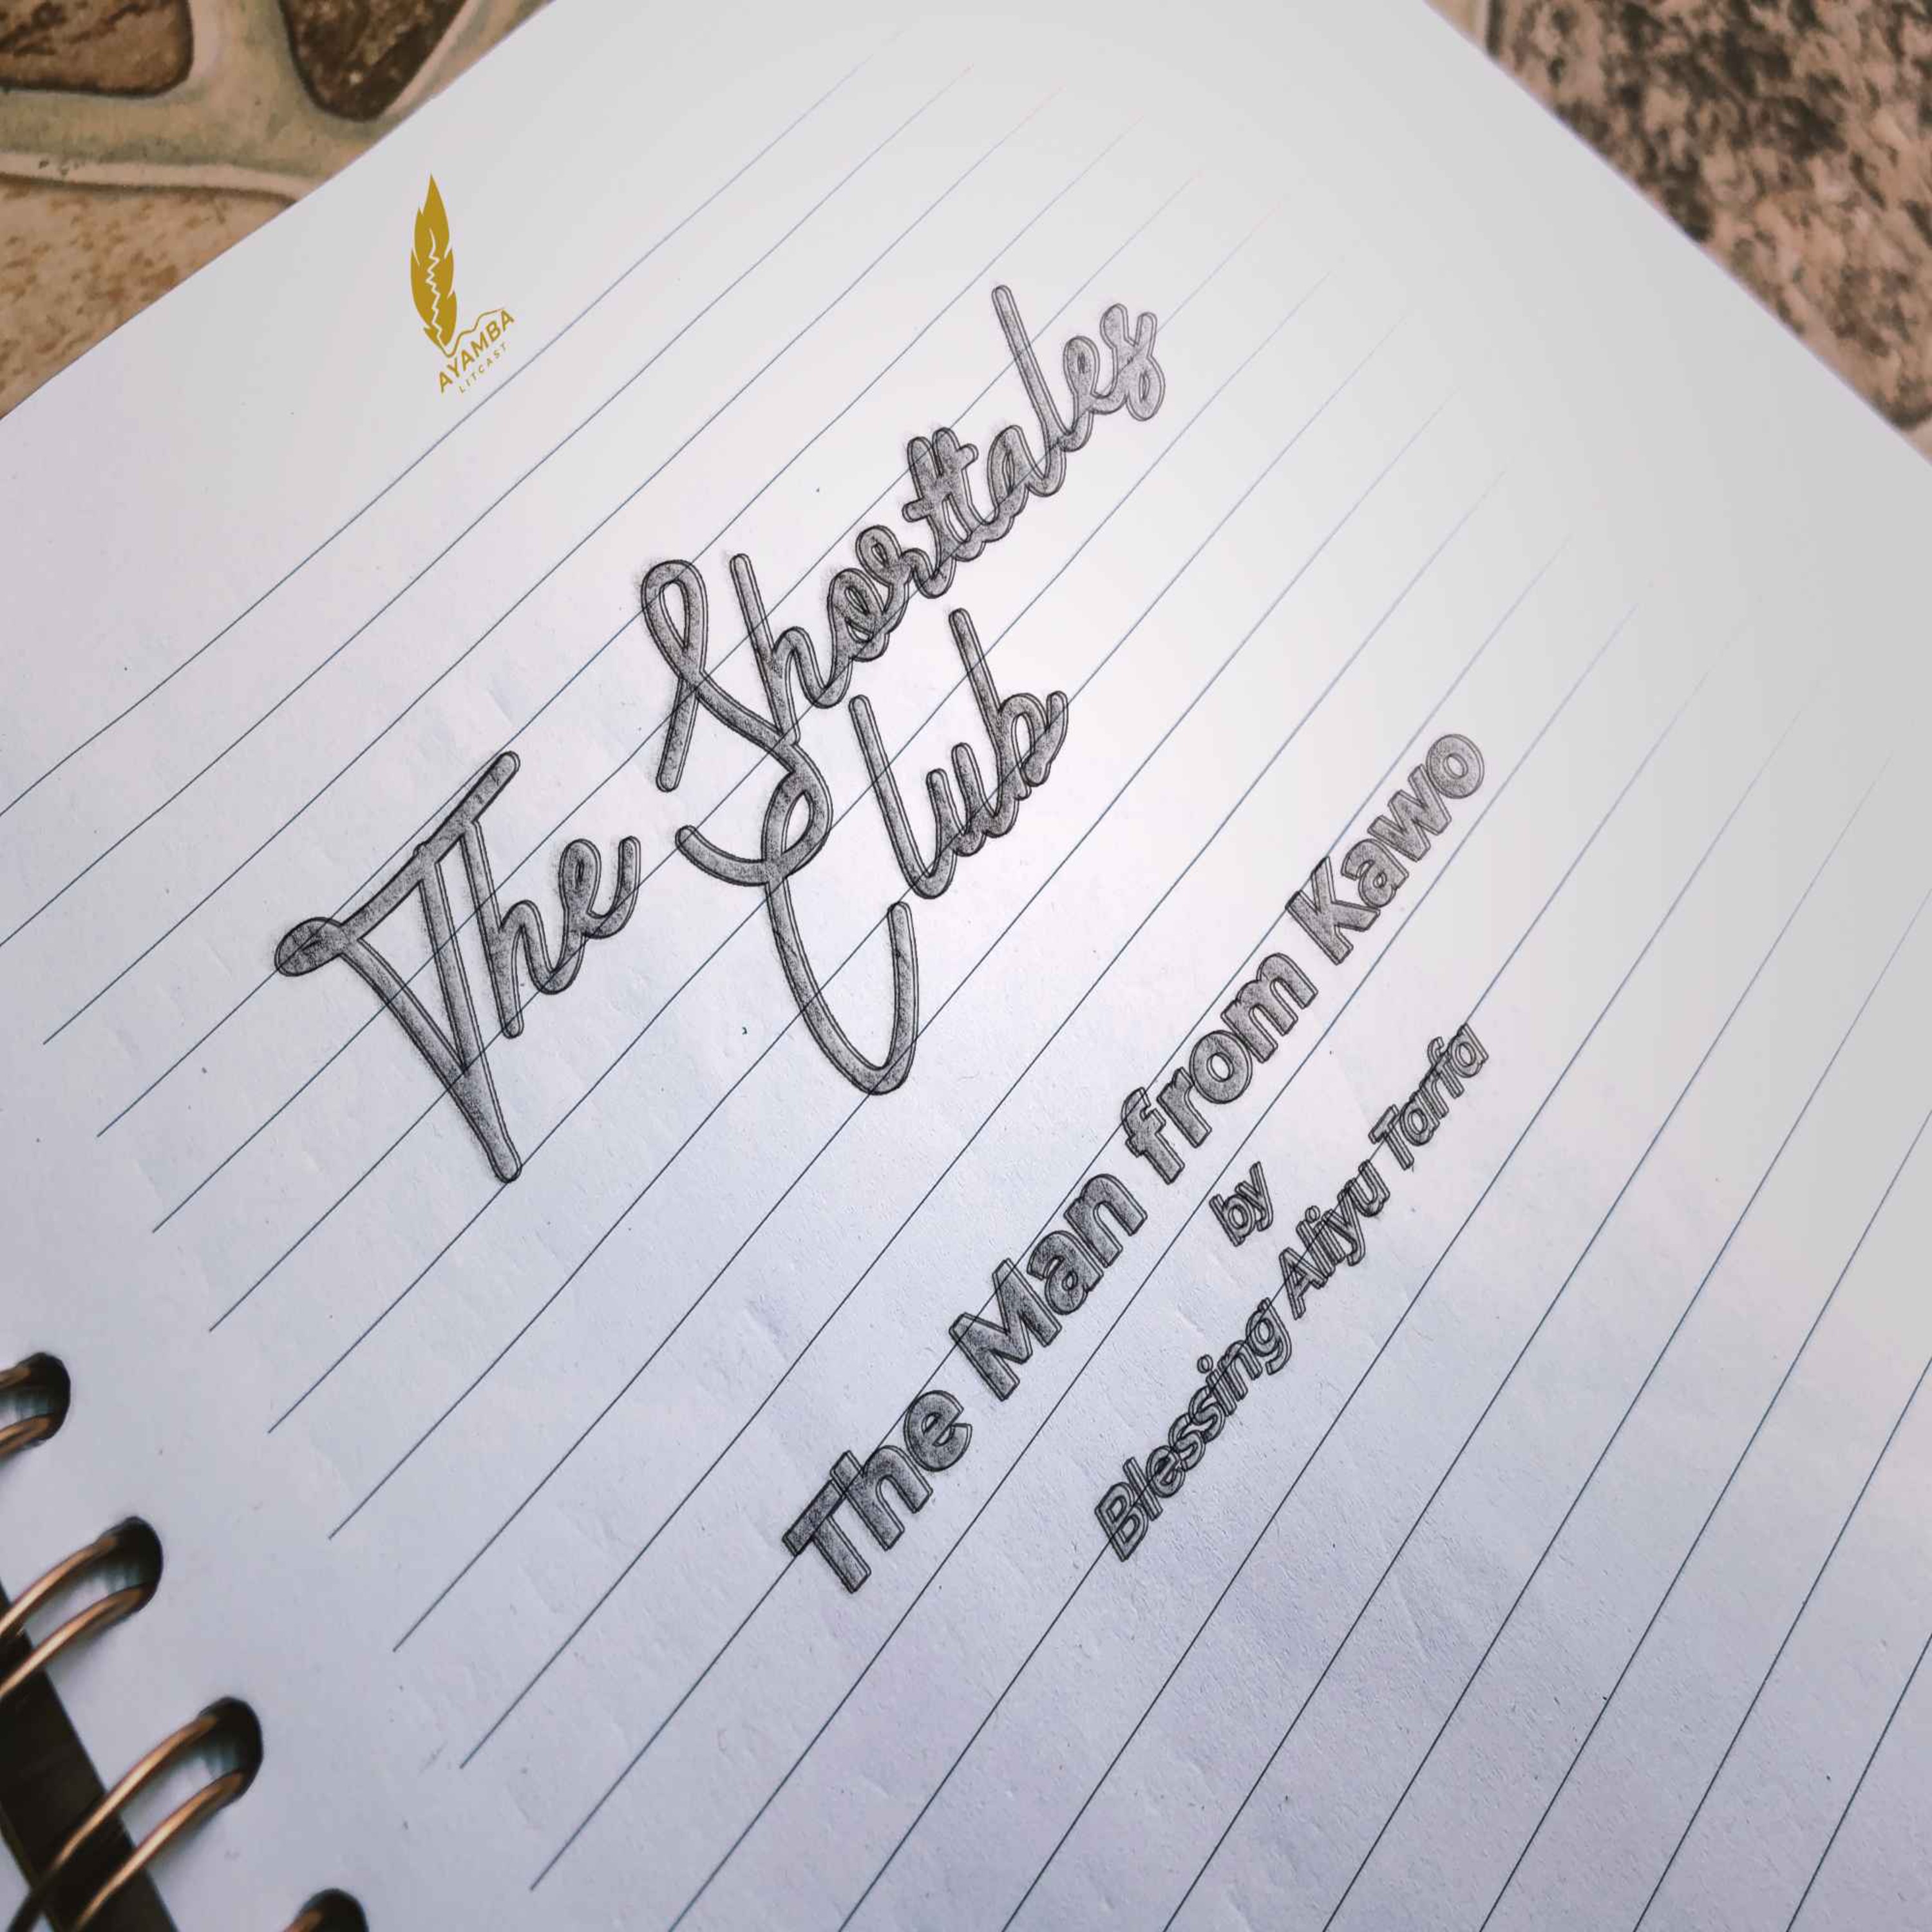 AYAMBA
LITCAST
The Shorttales
Club
The Man from Kawo
by
Blessing Aliyu Tarfa